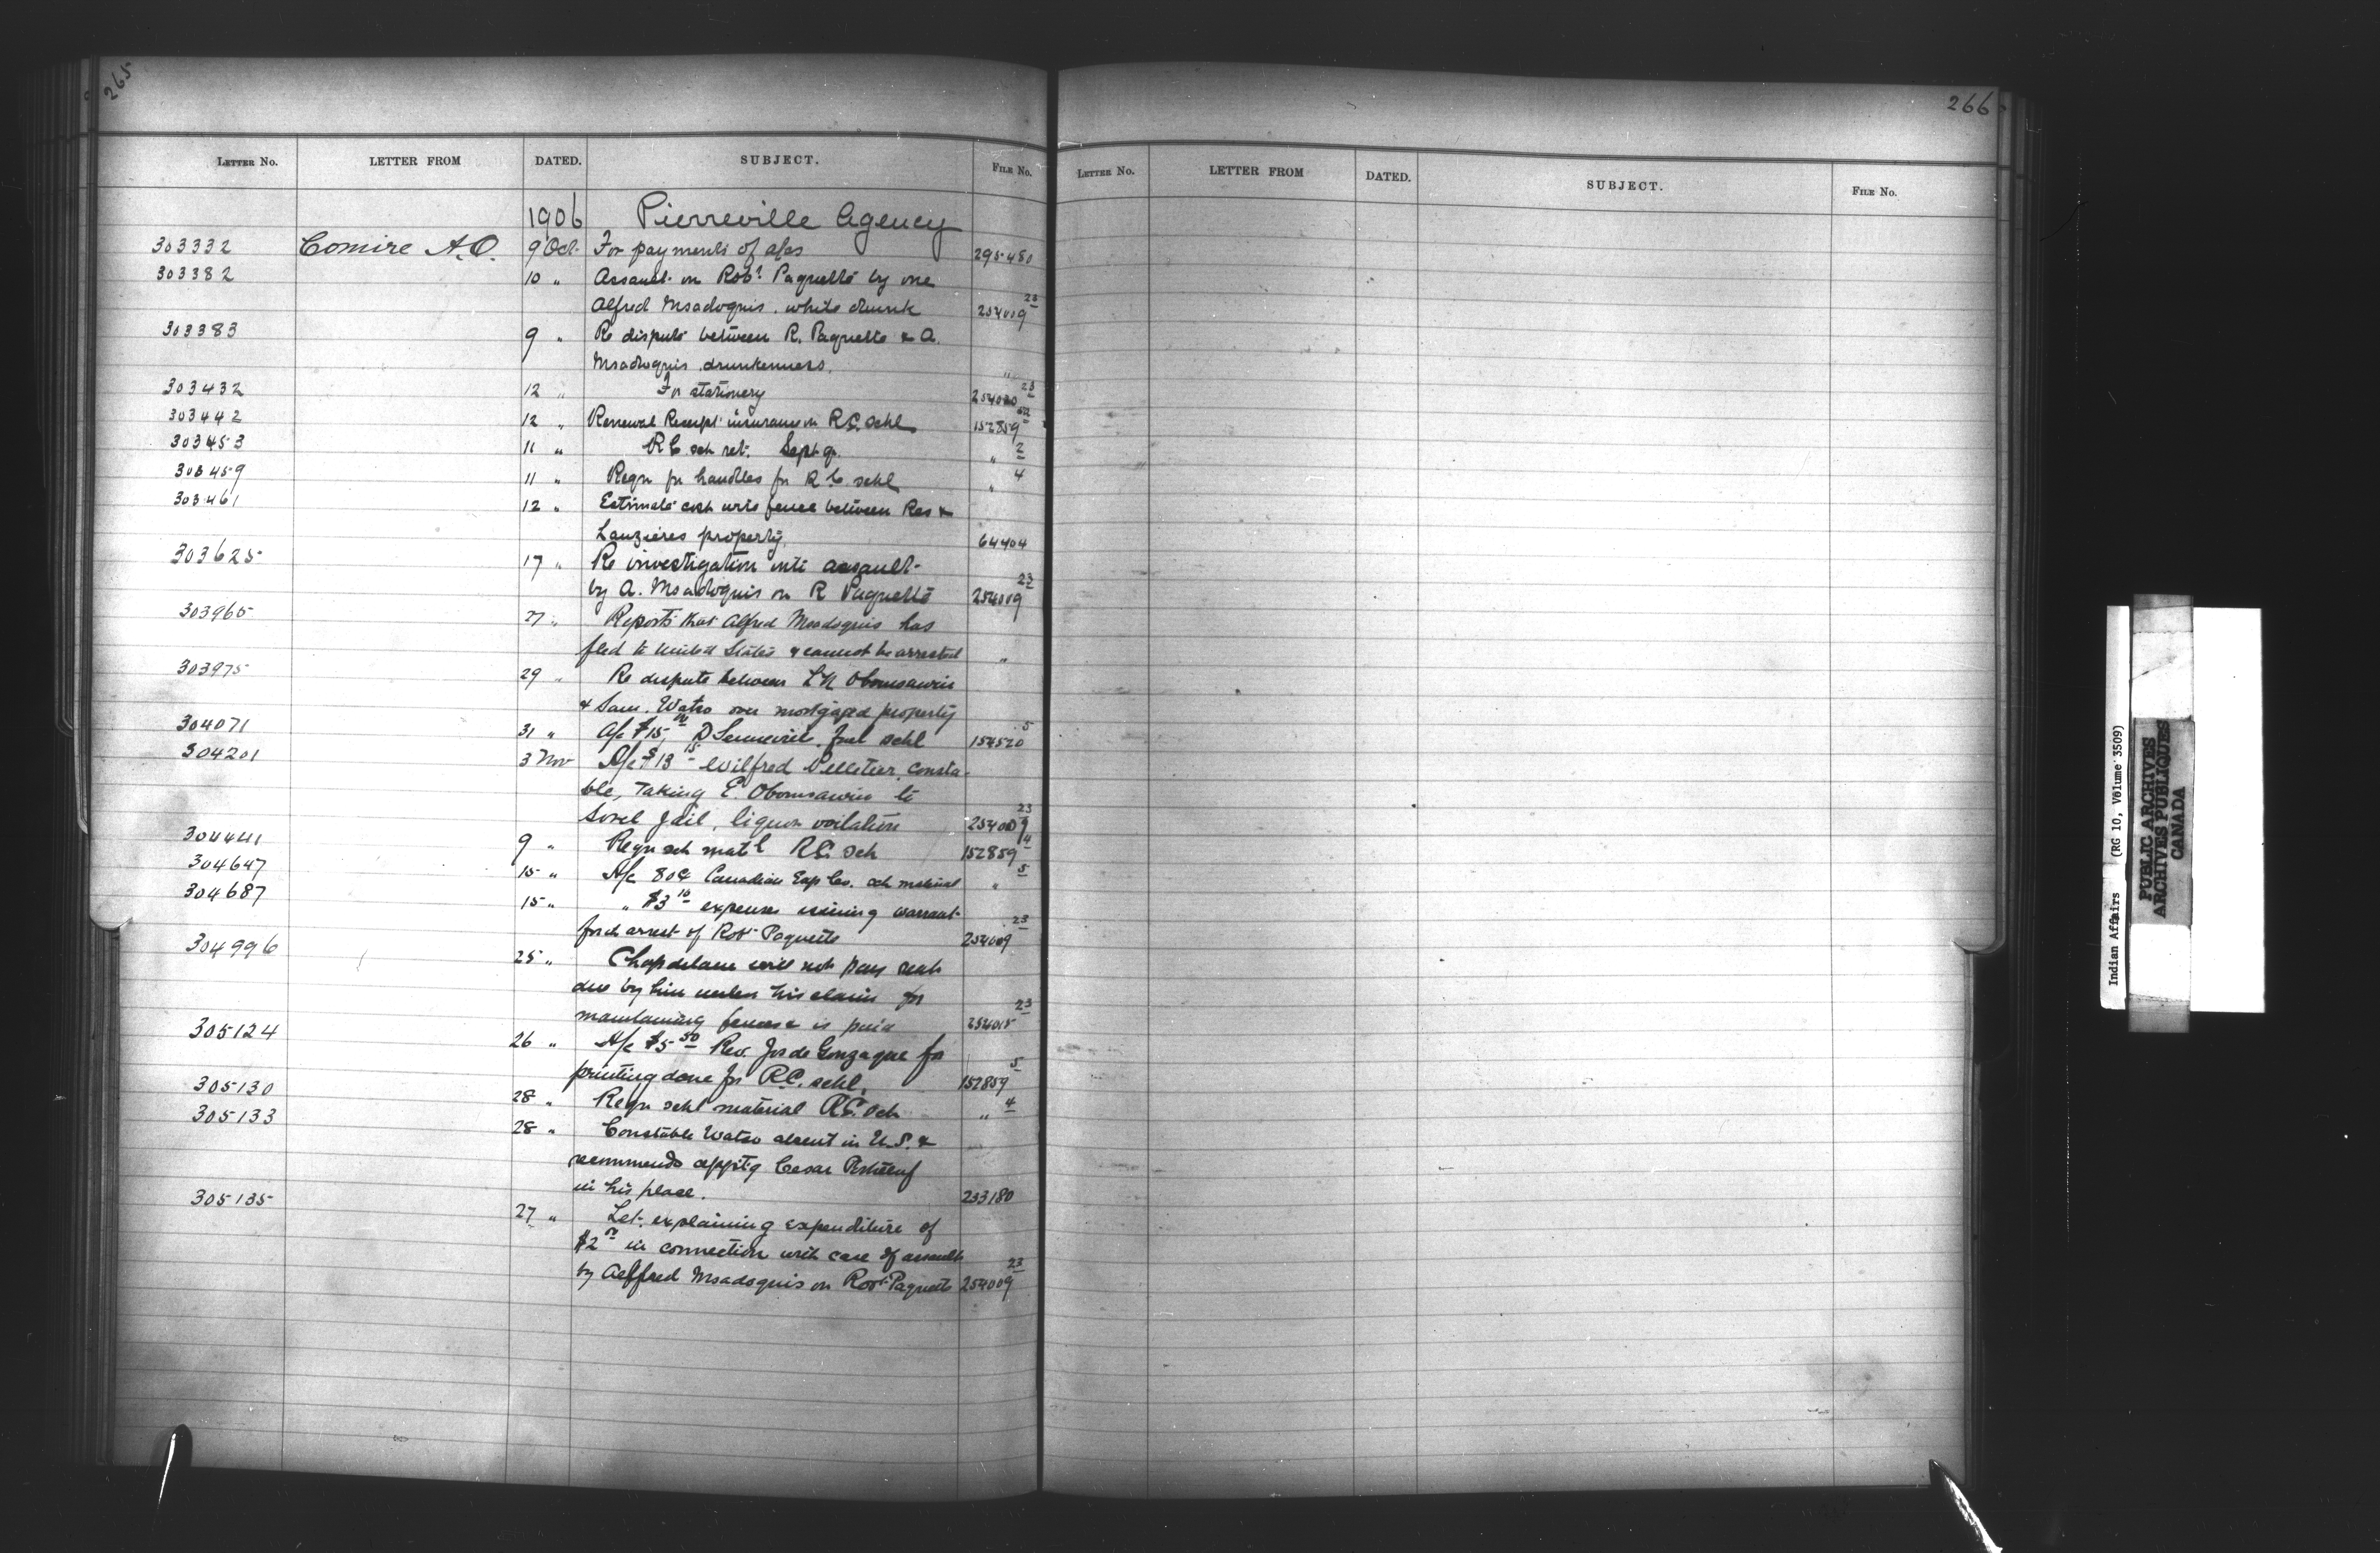 265
LETTER No. LETTER FROM DATED. SUBJECT. FILE No.
1906 Pierreville Agency
303332 Comire A.O. 9 Oct. For payments of a/cs 295480
303382 10 " Assault on Robt Paquette by one
Alfred Msadoquis. while drunk 254009 23
303383 9 " Re dispute between R. Paquette & A.
Msadoquis drunkenness. "
303432 12 " For stationery 254020 23
303442 12 " Renewal Receipt insurance on R.C. schl 152859
303453 11 " R C sch ret. Sept qr. " 2
303459 11 " Reqn for handles for R.C. schl " 4
303461 12 " Estimate cost wire fence between Res &
Lauzieres property. 64404
303625 17 " Re investigation into assault
by A. Msadoquis on R Paquette 254009 23
303965 27 " Reports that Alfred Msadoquis has
fled to United States & cannot be arrested "
303975 29 " Re dispute between L N Obomsawin
& Sam. Watso over mortgaged property
304071 31 " A/c $15.00 D fuel schl 154520 5
304201 3 Nov A/c $13 15 Wilfred Pelletier, consta-
ble, taking E. Obomsawin to
Sorel Jail, liquor voilation 254009 23
304441 9 " Reqn sch mat'l R.C. sch 152859 4
304647 15 " A/c 80¢ Canadian Exp Co. sch material " 5
304687 15 " " $3 10 expenses issuing warrant
for arrest of Robt Paquette 254009 23
304996 25 " Chapdelaine will not pay rent
due by him unless his claim for
maintaining fences is paid 254015 23
305124 26 " A/c $5 50 Rev. Jos de Gonzague for
printing done for R.C. schl. 152859 5
305130 28 " Reqn schl material R.C. sch " 4
305133 28 " Constable Watso absent in U.S. &
recommends appt'g Cesar
in his place. 233180
305135 27 " Let. explaining expenditure of
$2 in connection with case of assault
by Alffred Msadoquis on Robt Paquette 254009 23
266
LETTER No. LETTER FROM DATED. SUBJECT. FILE No.
Indian Affairs (RG 10, Volume 3509)
PUBLIC ARCHIVES
ARCHIVES PUBLIQUES
CANADA